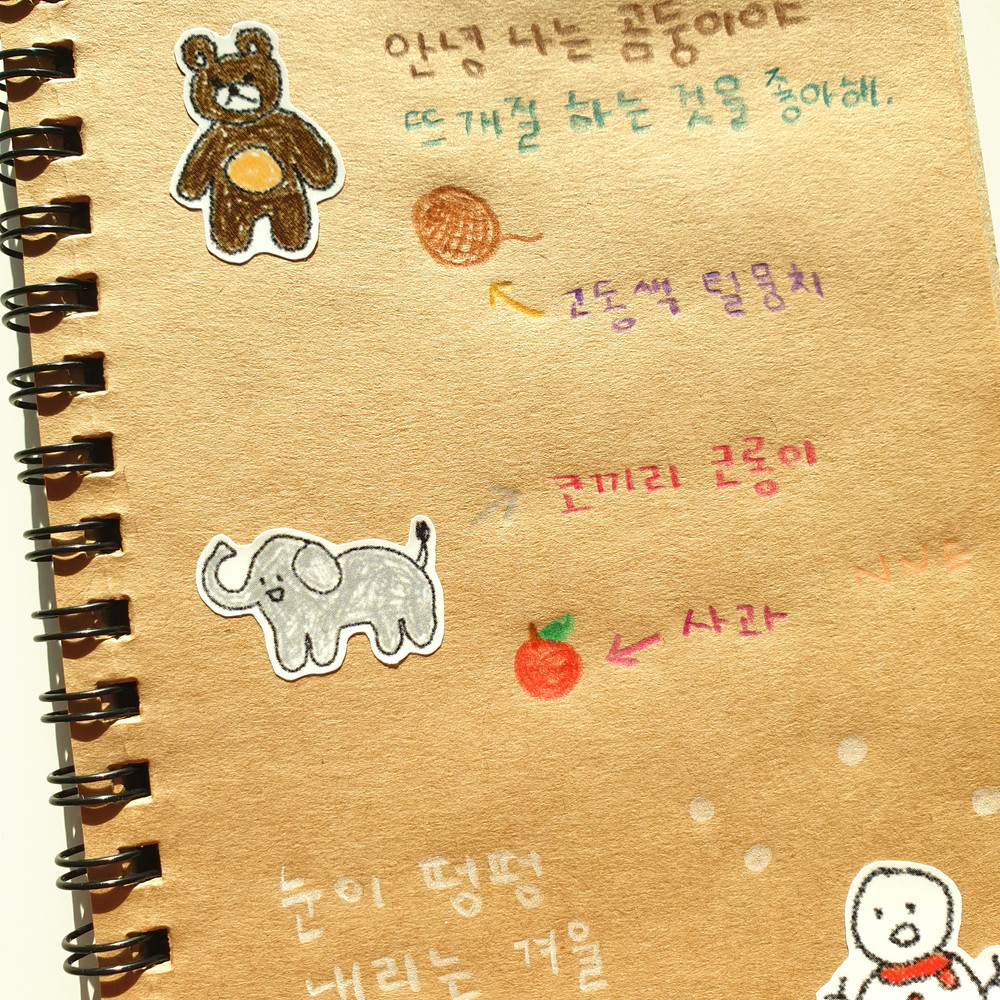 안녕 나는 곰둥이야
뜨개질 하는 것을 좋아해.
고동색 털뭉치
코끼리 근롱이
사과
눈이 펑펑
내리는 겨울